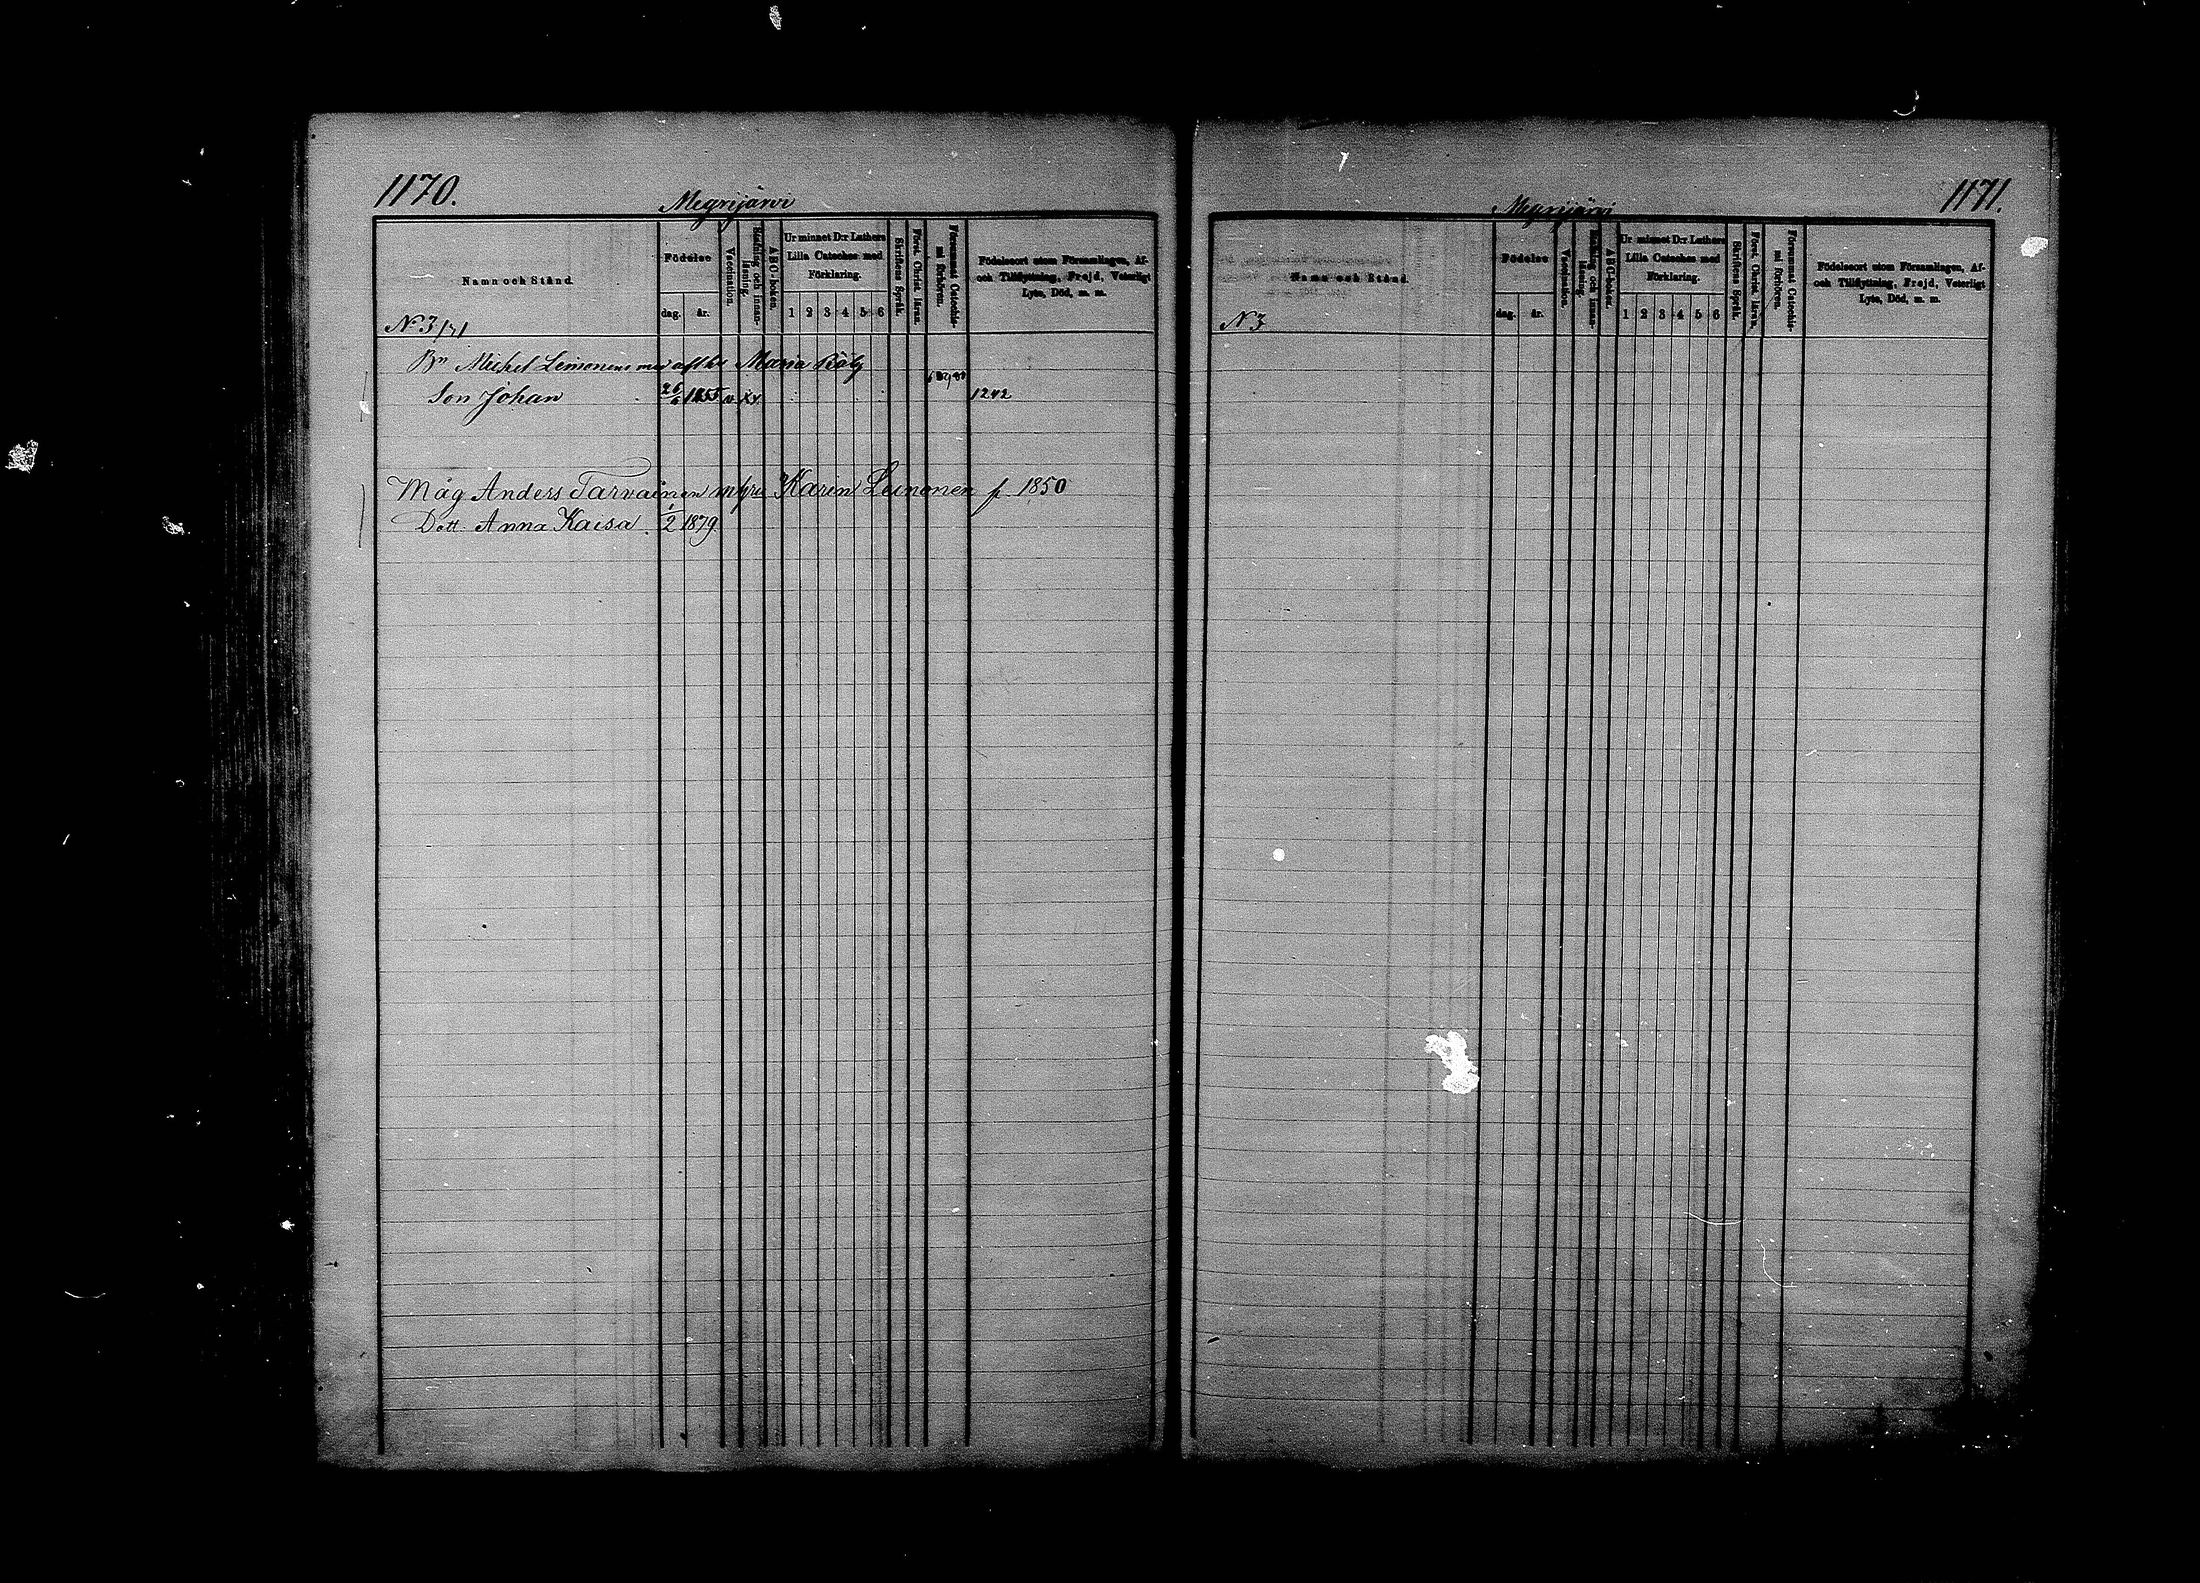 1170.
Megrijärvi
Namn och Stånd.
Födelse
dag. år.
Vaccination.
Stafning och innan-läsning.
ABC-boken.
Ur minnet D:r Luthers Lilla Cateches med Förklaring.
1 2 3 4 5 6
Skriftens Språk.
Först. Christ. läran.
Försummat Catechismi förhören.
Födelseort utom Församlingen, Af- och Tillflyttning, Frejd, Veterligt Lyte, Död, m. m.
No 3
Bn Michel Leinonens med Maria
Son Johan 26/6 1855 1242
Måg Anders Tarvainen Karin Leinonen p 1850
Dott. Anna Kaisa 1/2 1879.
1171.
Megrijärvi
Namn och Stånd.
Födelse
dag. år.
Vaccination.
Stafning och innan-läsning.
ABC-boken.
Ur minnet D:r Luthers Lilla Cateches med Förklaring.
1 2 3 4 5 6
Skriftens Språk.
Först. Christ. läran.
Försummat Catechismi förhören.
Födelseort utom Församlingen, Af- och Tillflyttning, Frejd, Veterligt Lyte, Död, m. m.
N 3